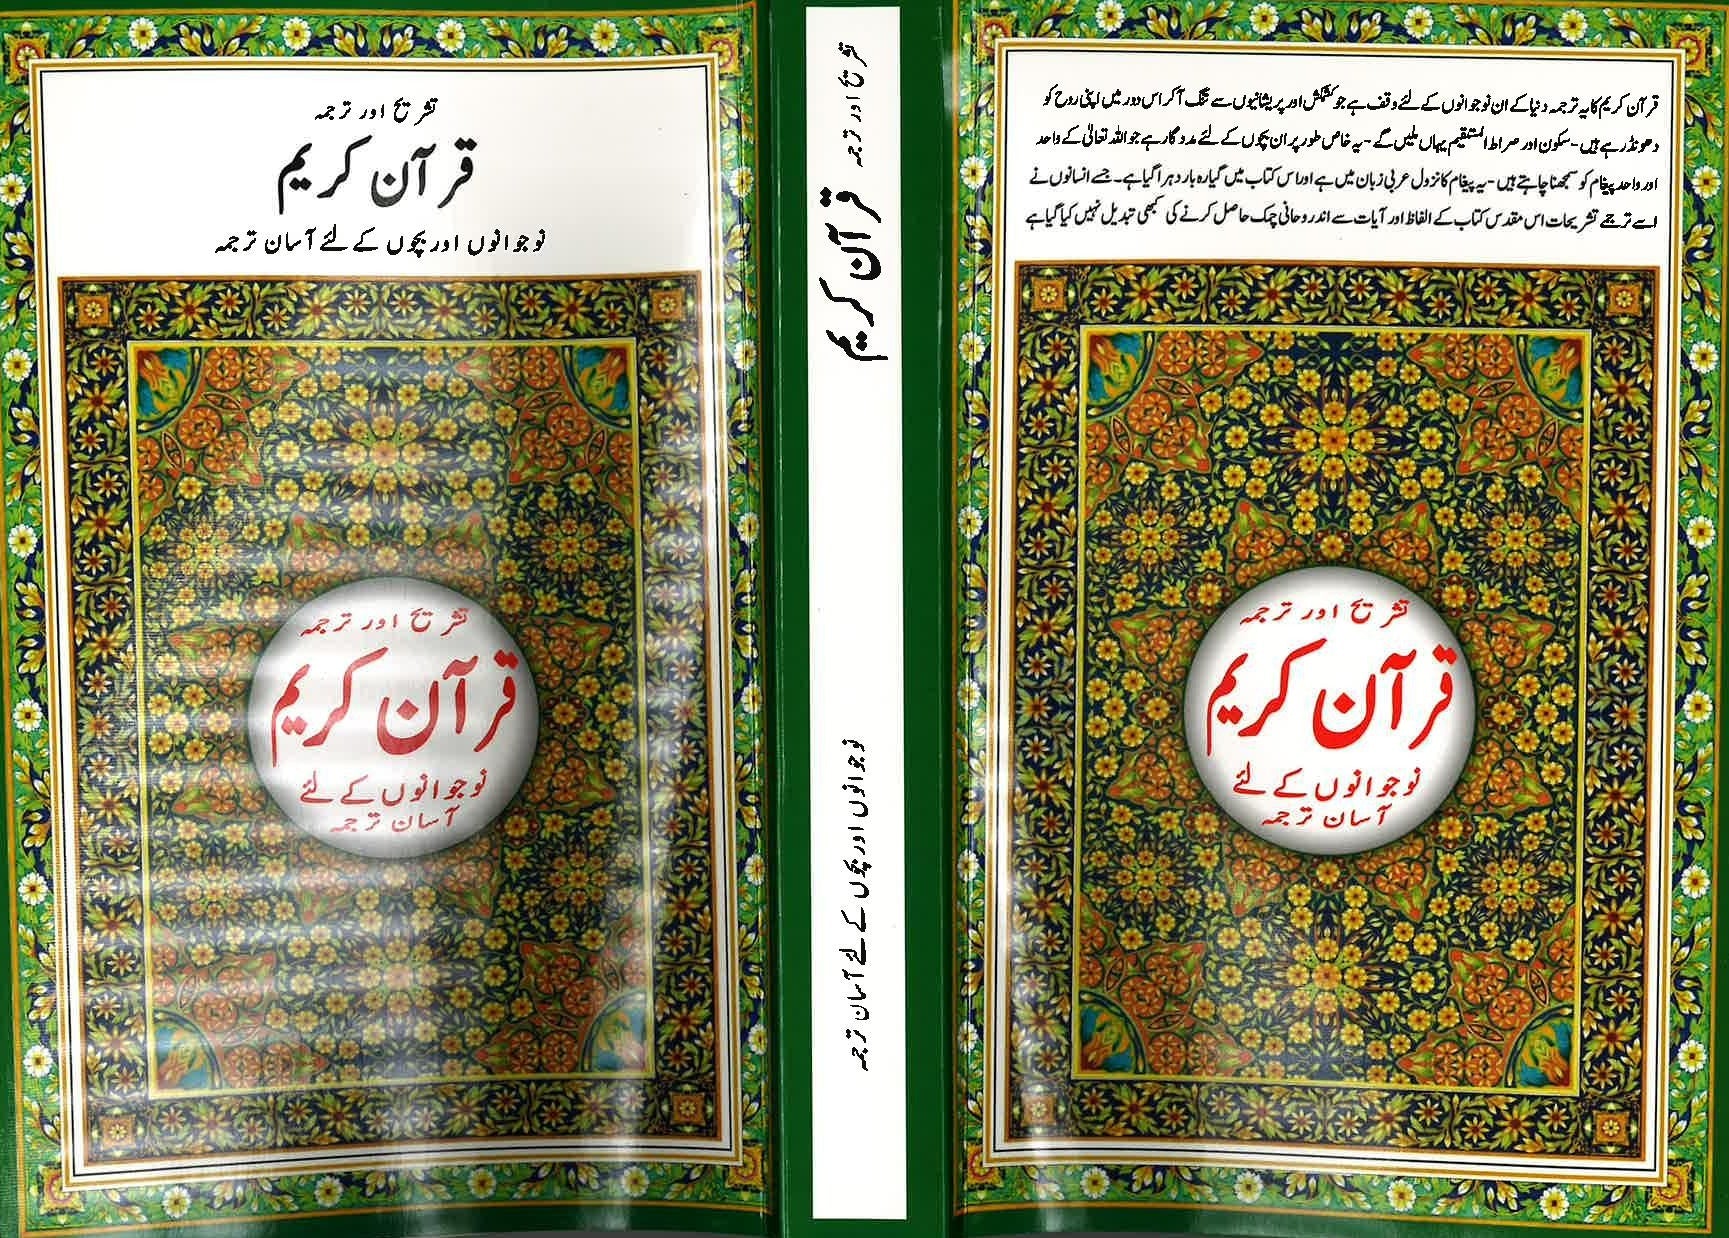 تشریح اور ترجمہ
قرآن کریم
نوجوانوں اور بچوں کے لئے آسان ترجمہ
تشریح اور ترجمہ
قرآن کریم
نوجوانوں کے لئے
آسان ترجمہ
تشریح اور ترجمہ
قرآن کریم
نوجوانوں اور بچوں کے لئے آسان ترجمہ
قرآن کریم کا یہ ترجمہ دنیا کے ان نوجوانوں کے لئے وقف ہے جو کشمکش اور پریشانیوں سے تنگ آکر اس دور میں اپنی روح کو
دھونڈر ہے ہیں - سکون اور صراط المستقیم یہاں ملیں گے - یہ خاص طور پر ان بچوں کے لئے مددگار ہے جو اللہ تعالیٰ کے واحد
اور واحد پیغام کو سمجھنا چاہتے ہیں - یہ پیغام کا نزول عربی زبان میں ہے اور اس کتاب میں گیارہ بار دہرا گیا ہے۔ جسے انسانوں نے
اسے ترجمے تشریحات اس مقدس کتاب کے الفاظ اور آیات سے اندر روحانی چمک حاصل کرنے کی کبھی تبدیل نہیں کیا گیا ہے
تشریح اور ترجمہ
قرآن کریم
نوجوانوں کے لئے
آسان ترجمہ